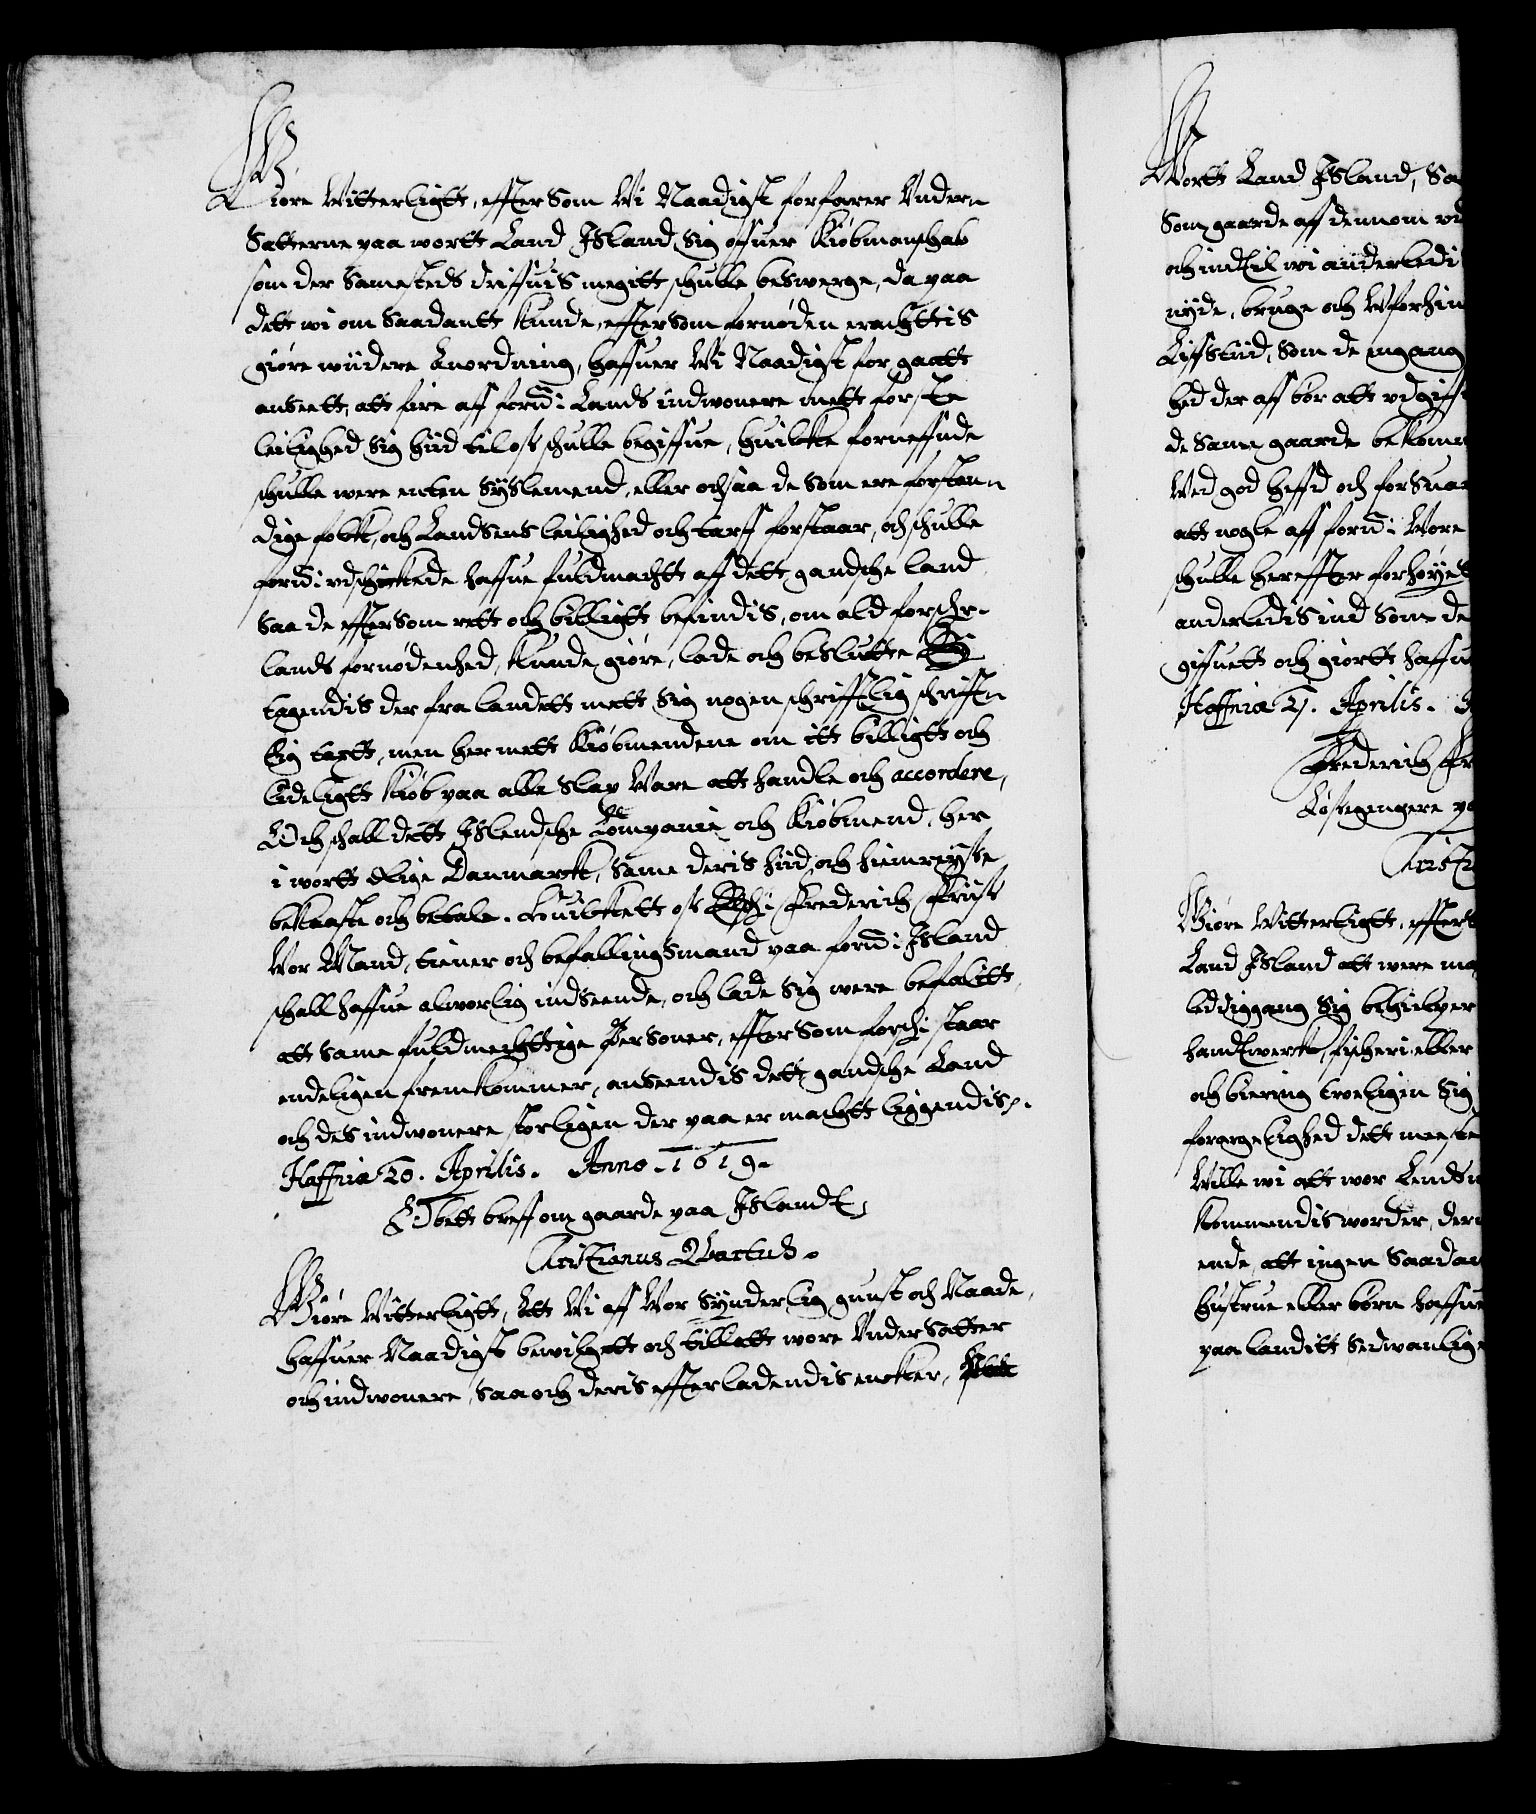 Giøre Witterligtt, effter Som Wi Naadigst forfarer Vnder-
Satterne paa wortt Land Jsland, Sig offuer Kiøbmanschab
som der Samesteds driffuis megitt schulle beswerge, da paa
dett wi om Saadantt kunde, efftersom fornøden erachttis
giøre widere Anordning, haffuer Wi Naadigst for gaatt
anseett, att fire aff ford: Lands indwonere mett første
leilighed Sig hiid till oss schulle begiffue, huilcke forneffnde
schulle were enten Syslemend, eller och saa de Som ere forstan-
dige folck, och Landsens leilighed och tarff forstaar, och schulle
ford: vdschickede haffue fuldmachtt aff dett gandsche land
Saa de efftersom rett och billigtt befindis, om ald forschr-
lands fornødenhed, kunde giøre, lade och beslutte
tagendis der fra landett mett Sig nogen schrifftlig schrifft-
lig taxtt, men her mett Kiøbmendene om itt billigtt och
lideligtt Kiøb paa alle Slax Ware att handle och accordere,
Och schall dett Jslendsche Companie och Kiøbmend, her
i wortt Rige Danmarck, Same deris hiid och hiemreysse
bekaaste och betale. Huilckett oss Elsche: Frederich Friiss
Wor Mand, tiener och befallingsmand paa ford: Jsland
schall haffue alworlig indseende, och lade Sig were befalitt,
att Same fuldmechttige Personer, efftersom forschi staar
endeligen fremkommer, anseendis dett gandsche Land
och des indwonere storligen der paa er machtt liggendis.
Haffnia 20. Aprilis. Anno 1619.
Obett breff om gaarde paa Jsland
Cristianus Qvartus.
Giøre Witterligtt, Att Wi aff Wor Synderlig gunst och Naade,
haffuer Naadigst bewilgett och tillatt wore Vndersatter
och indwonere, Saa och deris effterladendis encker,
Wortt Land Jsland, Sa
Som gaarde aff dennom vd
och indtil wi anderledi
nyde, bruge och Wforhin
Liffstiid, Som de engang
hed der aff bør att vdgiff
de Same gaarde bekom
Wed god heffd och forsuar
att nogle aff ford: Wore
schulle hereffter forhøyes
anderledis ind Som de
giffuett och giortt haffu
Haffnia 2j. Aprilis. A
Frederich Fr
Løssgengere pa
Crist
Giøre Witterligtt, effter
Land Jsland att were ma
leddiggang Sig behielper
handtwerck, fischeri eller
och biering troeligen Sig
forargelighed dett meeste
Wille wi att wor Lends
kommendis worder, der
ende, att ingen Saadan
hustrue eller børn haffue
paa landitt Sedwanlige